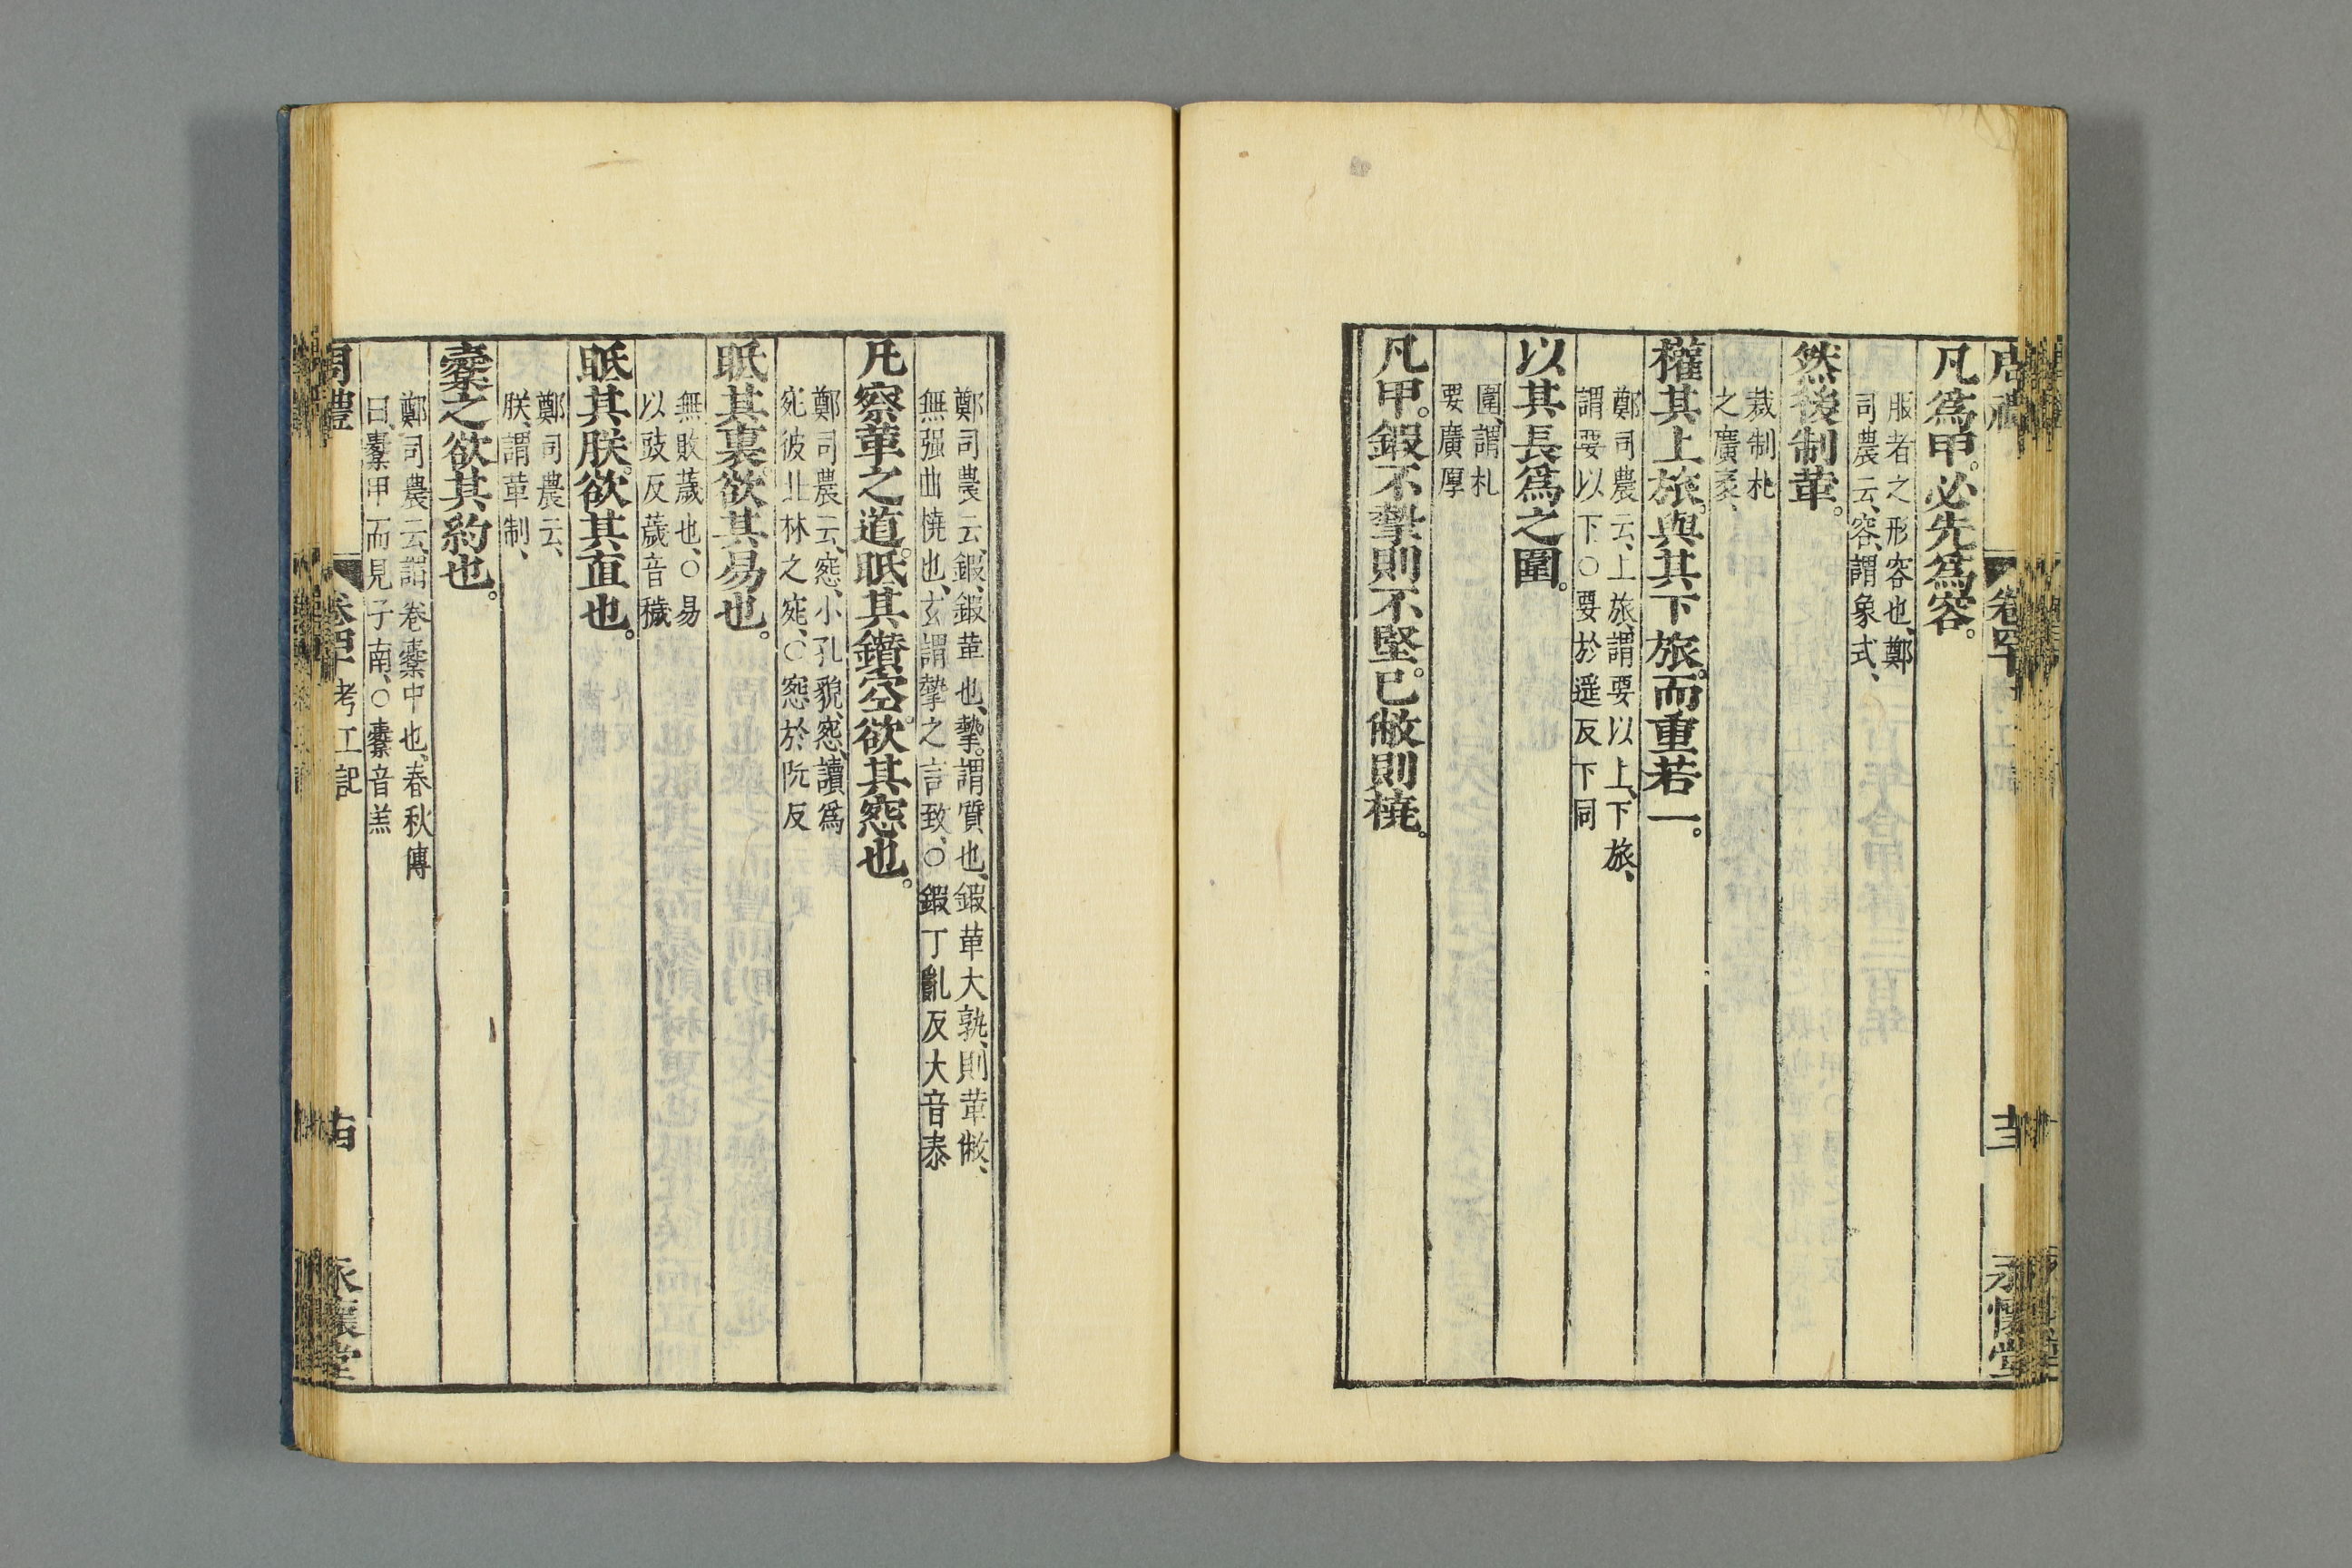 周禮 卷四十 考工記 十三 永懷堂
凡爲甲。必先爲容。
服者之形容也、鄭
司農云、容、謂象式、
然後制革。
裁制札
之廣袤、
權其上旅。與其下旅。而重若一。
鄭司農云、上旅、謂要以上、下旅、
謂要以下○要於遥反下同
以其長爲之圍。
圍、謂札
要廣厚
凡甲。鍜不摯則不堅。已敝則橈。
鄭司農云、鍜、鍜革也、摯。謂質也、鍜革大孰、則革敝、
無强曲橈也、玄謂摯之言致、○鍜丁亂反大音泰
凡察革之道。眂其鑽空。欲其窓也。
鄭司農云、窓、小孔貌、窓、讀爲
宛彼北林之宛、○窓於阮反
眂其裏。欲其易也。
無敗薉也、○易
以豉反薉音穢
眂其朕。欲其直也。
鄭司農云、
朕、謂革制、
櫜之欲其約也。
鄭司農云、謂卷櫜中也、春秋傳
曰、櫜甲而見子南、○櫜音羔
周禮 卷四十 考工記 十四 永懷堂